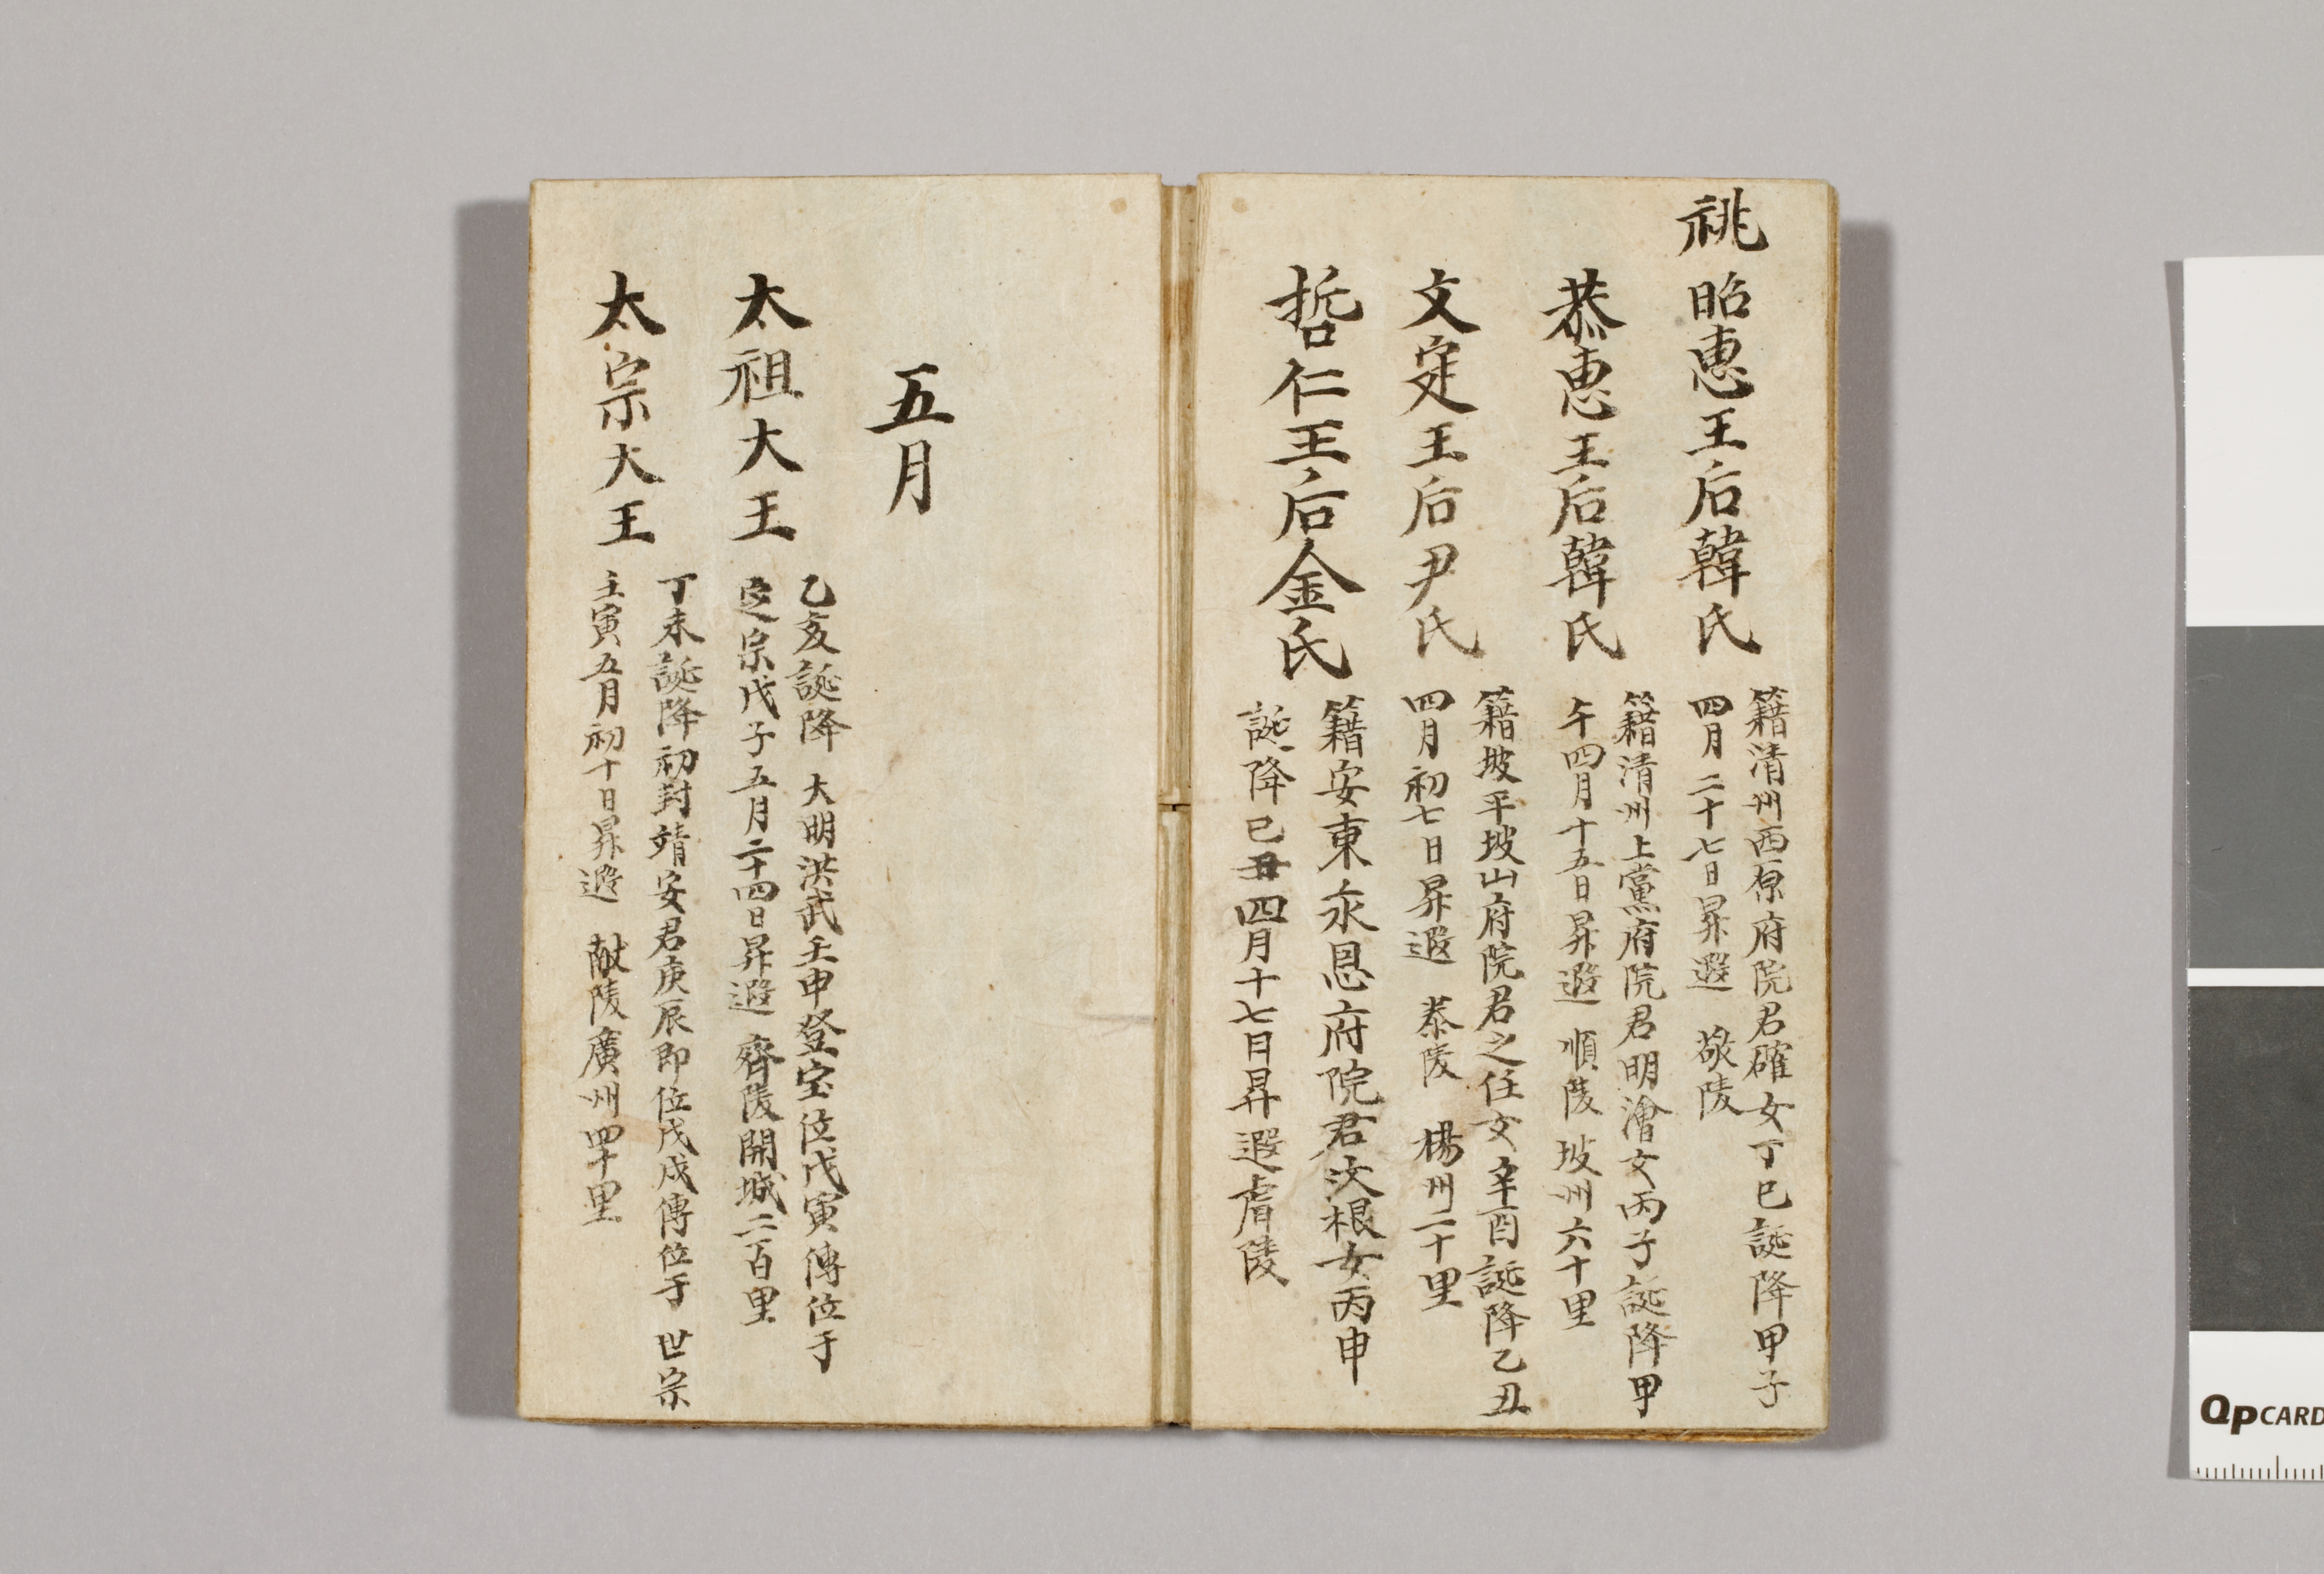 祧
昭惠王后韓氏
籍清州西原府院君確女丁巳誕降甲子
四月二十七日昇遐 敬陵
恭惠王后韓氏
籍清州上黨府院君明澮女丙子誕降甲
午四月十五日昇遐 順陵 坡州六十里
文定王后尹氏
籍坡平坡山府院君之任女辛酉誕降乙丑
四月初七日昇遐 泰陵 楊州二十里
哲仁王后金氏
籍安東永恩府院君汶根女丙申
誕降己丑四月十七日昇遐睿陵
五月
太祖大王
乙亥誕降 大明洪武壬申登宝位戊寅傳位于
定宗戊子五月二十四日昇遐 齊陵開城二百里
太宗大王
丁未誕降初封靖安君庚辰即位戊戌傳位于 世宗
壬寅五月初十日昇遐 献陵廣州四十里
QpCARD